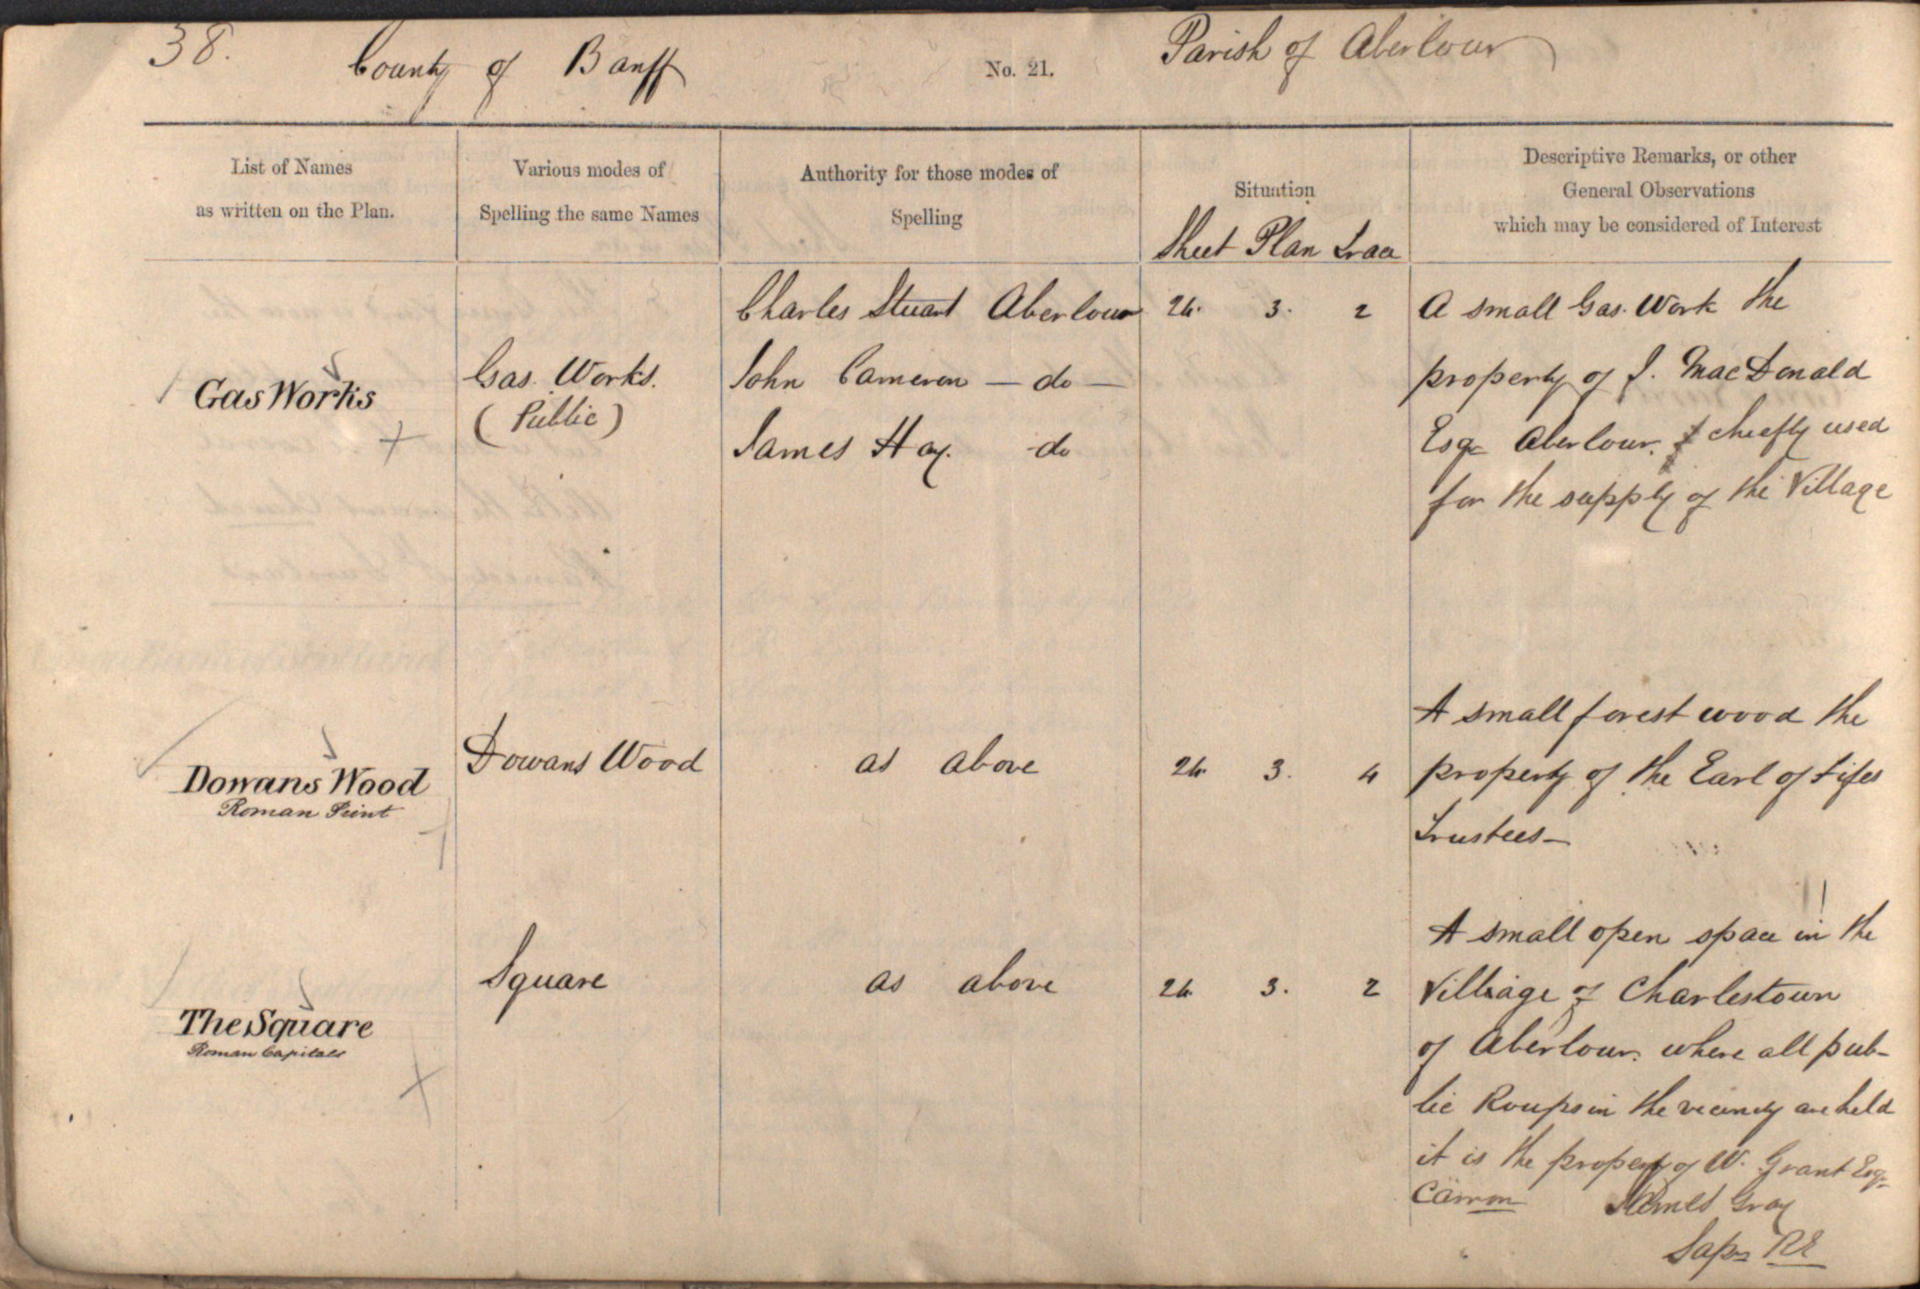 38. County of Banff No. 21. Parish of Aberlour
List of Names
as written on the Plan.
Various modes of
Spelling the same Names
Authority for those modes of
Spelling
Situation
Sheet Plan Trace
Descriptive Remarks, or other
General Observations
which may be considered of Interest
Gas Works
Gas. Works.
(Public)
Charles Stuart Aberlour
John Cameron — do —
James Hay. do
24. 3. 2
A small Gas. Work the
property of J. MacDonald
Esqr Aberlour. & chiefly used
for the supply of the Village
Dowans Wood
Roman Print
Dowans Wood
as above
24. 3. 4
A small forest wood the
property of the Earl of Fifes
Trustees—
The Square
Roman Capitals
Square
as above
24. 3. 2
A small open space in the
Village of Charlestown
of Aberlour. where all pub-
lic Roups in the vicinity are held
it is the property of W. Grant Esqr
Carron James Gray
Sapr RE